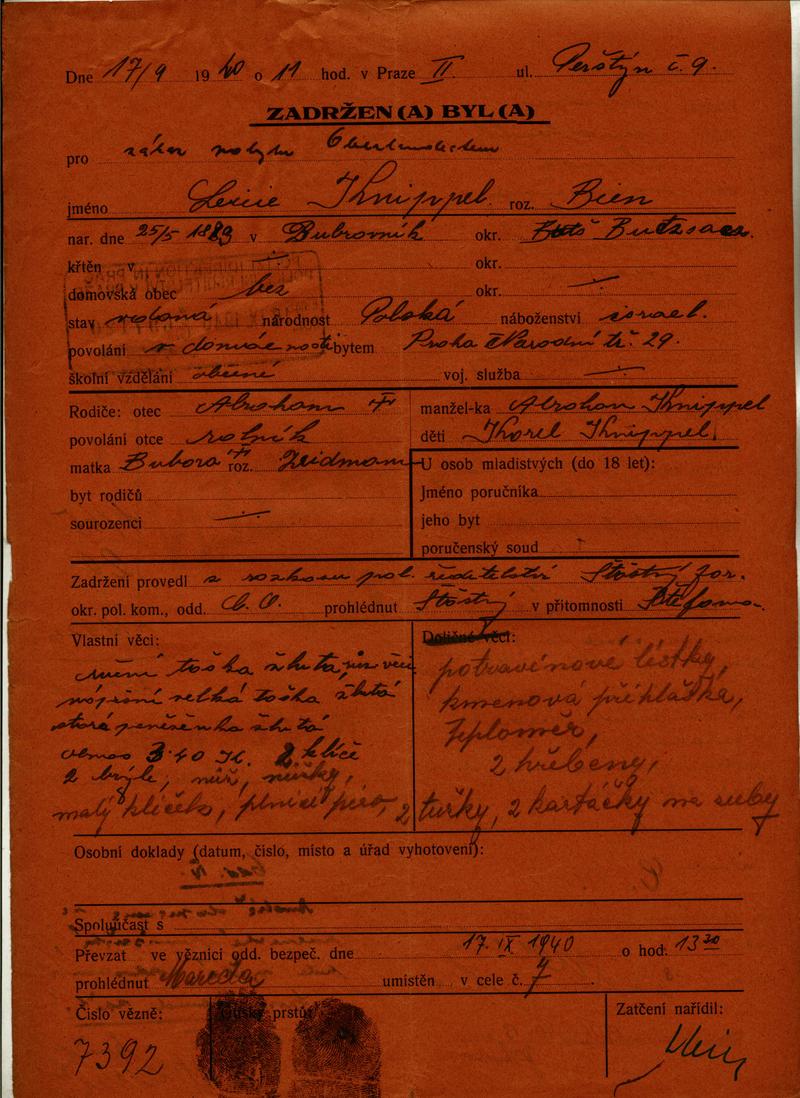 Dne 17/9 1940 o 11 hod. v Praze II. ul. Perštýn č. 9.
ZADRŽEN(A) BYL(A)
pro zákaz pobytu
jméno Knippel roz. Bien
nar. dne 25/5 1889 v Dubrovník okr.
křtěn v ÷ okr.
domovská obec bez okr. ÷
stav vdaná národnost Polská náboženství israel.
povolání v domácnosti bytem Praha Národní tř. 29.
školní vzdělání obecné voj. služba ÷
Rodiče: otec Abraham manžel-ka Abrahan Knippel
povolání otce rolník děti Karel Knippel.
matka roz. Zeidmann U osob mladistvých (do 18 let):
byt rodičů Jméno poručníka
sourozenci ÷ jeho byt
poručenský soud
Zadržení provedl z rozkazu pol. ředitelství Šťastný
okr. pol. kom., odd. prohlédnut Šťastný v přítomnosti
Vlastní věci: Doličné věci:
ruční taška žlutá, růz. věci potravinové lístky,
velká taška žlutá kmenová přihláška,
stará peněženka žlutá teploměr,
obnos 3·40 K. 2 klíče 2 hřebeny,
2 brýle, nůž, nůžky,
malý klíček, plnicí pero, 2 tužky, 2 kartáčky na zuby
Osobní doklady (datum, číslo, místo a úřad vyhotovení):
Spoluúčast s
Převzat ve věznici odd. bezpeč. dne 17. IX 1940 o hod. 13 20
prohlédnut Mareda umístěn v cele č. 7
Číslo vězně: prstů: Zatčení nařídil:
7392